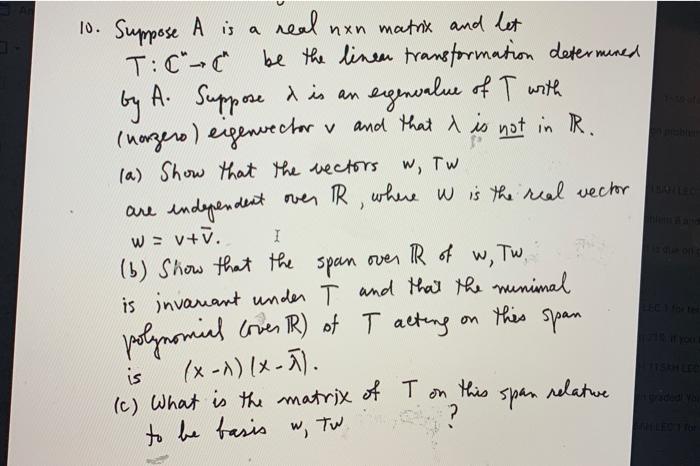 10. Suppose A is a real n×n matrix and let
T: ℂⁿ → ℂⁿ be the linear transformation determined
by A. Suppose λ is an eigenvalue of T with
(nonzero) eigenvector v and that λ is not in ℝ.
(a) Show that the vectors w, Tw
are independent over ℝ, where w is the real vector
w = v + v̄.
(b) Show that the span over ℝ of w, Tw
is invariant under T and that the minimal
polynomial (over ℝ) of T acting on this span
is (x-λ)(x-λ̄).
(c) What is the matrix of T on this span relative
to be basis w, Tw ?